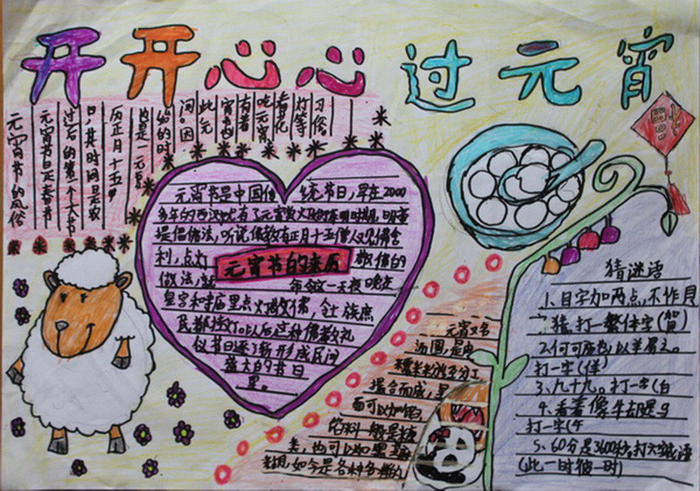 开开心心过元宵
元宵节的风俗
元宵节是春节
过后的第一个大节
日,其时间是农
历正月十五。
始的时
间。因
此元
宵节
有着
吃元宵
看花
灯等
习俗
元宵节是中国传 统节日,早在2000
多年的西汉就有了元宵 明帝时期,明帝
提倡佛法,听说佛教有正月十五僧人观佛舍
利,点灯 敬佛的
元宵节的来历
做法,就 年令这一天夜晚在
皇宫和寺庙里点灯敬佛,令士族庶
民都挂灯。以后这种佛教礼
仪节日逐了渐形成民间
盛大的节日
里。
元宵又名
汤圆,是由
糯米粉
混合而成,里
而可以加馅
馅料一般是糖
类,也可以
如今是各种各样的
猜谜语
1、目字加两点,不作貝
猜。打一繁体字(賀)
打一字(佯)
3、九十九。打一字(白
4、看着像牛却是
打一字(午
5、60分是3600秒,打六字成语
(此一时彼一时)